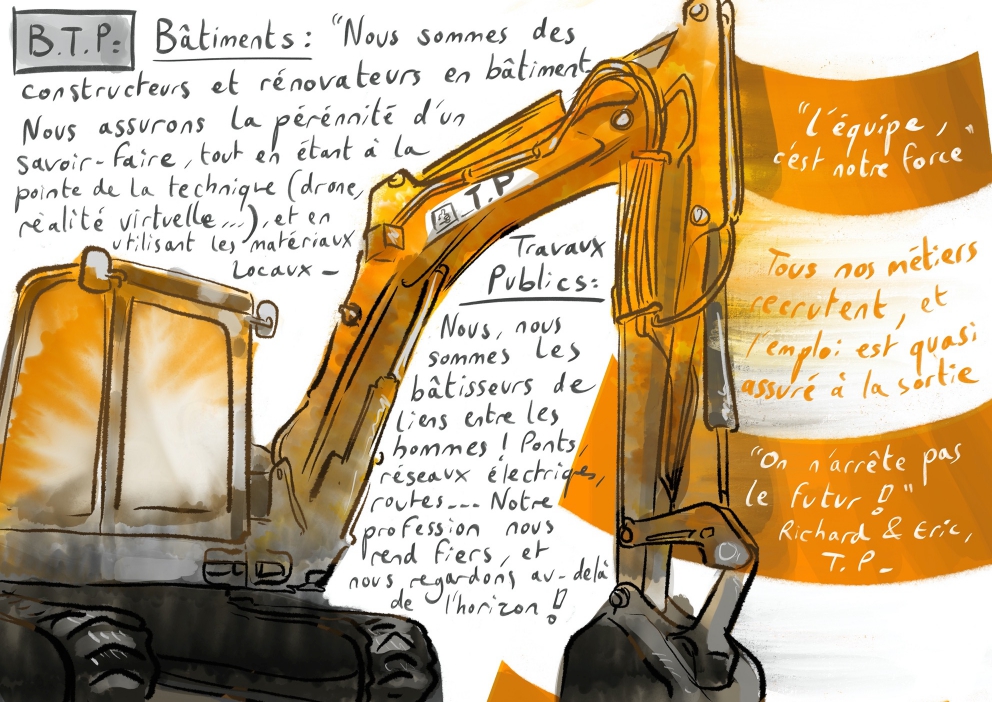 B.T.P: Bâtiments : "Nous sommes des
constructeurs et rénovateurs en bâtiment.
Nous assurons la pérénnité d'un
savoir-faire, tout en étant à la
pointe de la technique (drone,
réalité virtuelle...), et en
utilisant les matériaux
locaux -
T.P
Travaux
Publics :
Nous, nous
sommes les
bâtisseurs de
liens entre les
hommes ! Ponts,
réseaux électriques,
routes... Notre
profession nous
rend fiers, et
nous regardons au-delà
de l'horizon !
"L'équipe,
c'est notre force"
Tous nos métiers
recrutent, et
l'emploi est quasi
assuré à la sortie
"On n'arrête pas
le futur !"
Richard & Eric,
T.P-